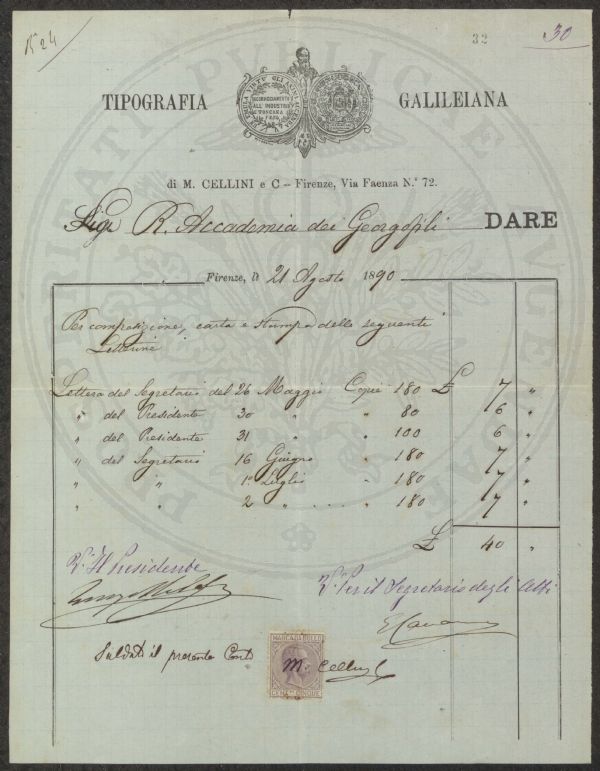 1524
32
30
TIPOGRAFIA GALILEIANA
INCORAGGIAMENTO
ALL' INDUSTRIA
TOSCANA
di M. CELLINI e C – Firenze, Via Faenza N.° 72.
R. Accademia dei Georgofili DARE
Firenze, lì 21 Agosto 1890
Per composizione, carta e stampa delle seguenti
Letterine
Lettera del Segretario del 26 Maggio Copie 180 £ 7 "
" del Presidente 30 " " 80 6 "
" del Presidente 31 " 100 6 "
" del Segretario 16 Giugno " 180 7 "
" " 1° Luglio " 180 7 "
" " 2 " .... " 180 7 "
£ 40 "
Il Presidente
Per il Segretario degli Atti
Saldato il presente Conto
M. Cellini
MARCA DA BOLLO
CENT. CINQUE